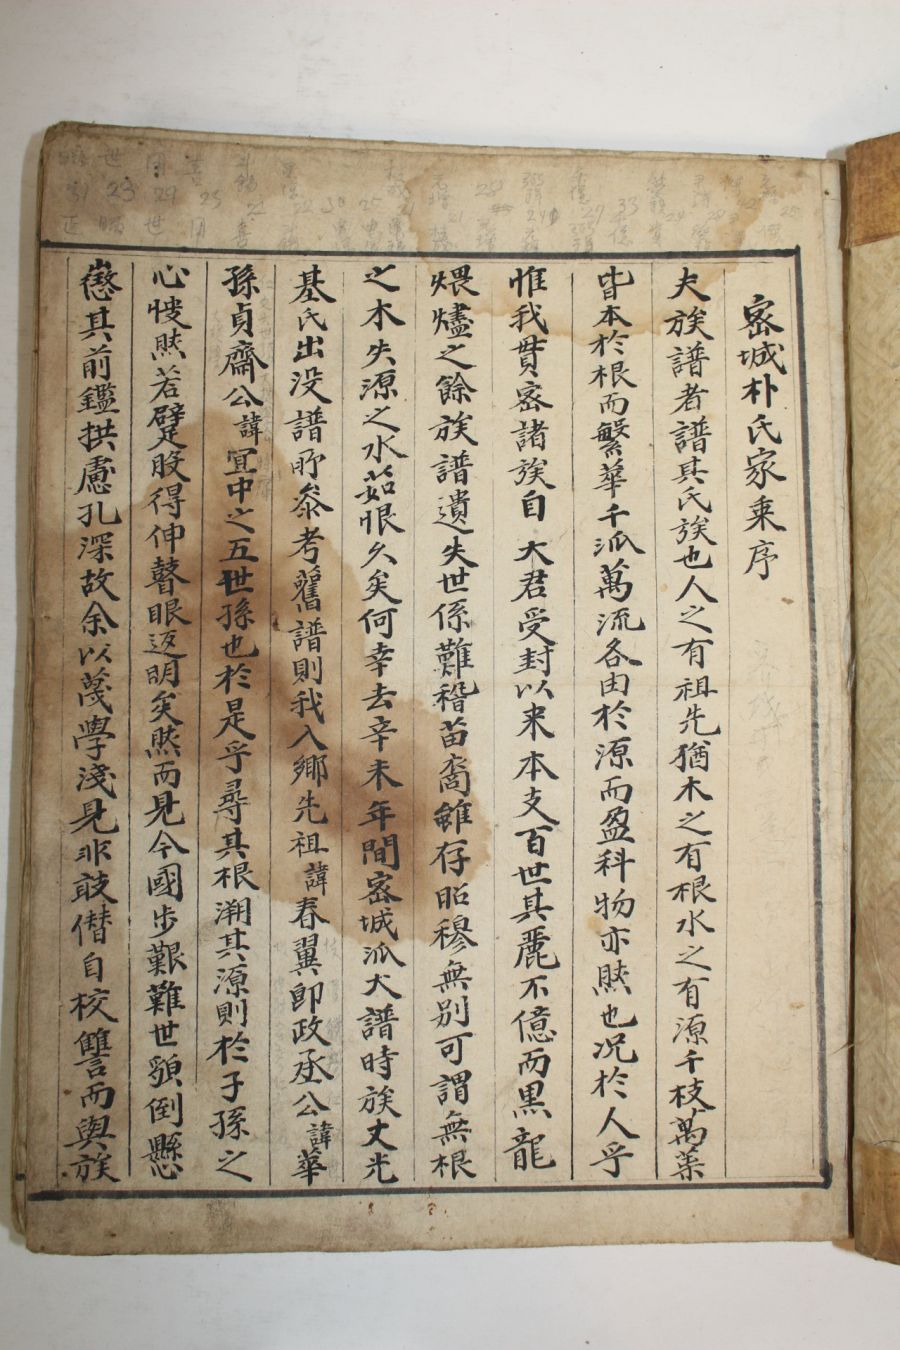 密城朴氏家乗序
夫族譜者譜其氏族也人之有祖先猶木之有根水之有源千枝萬葉
皆本於根而繁華千派萬流各由於源而盈科物亦然也况於人乎
惟我貫密諸族自 大君受封以来本支百世其麗不億而黒龍
煨燼之餘族譜遺失世係難稽苗裔雖存昭穆無別可謂無根
之木失源之水茹恨久矣何幸去辛未年間密城派大譜時族丈光
基氏出没譜所叅考舊譜則我入鄉先祖諱春翼卽政丞公諱華
孫貞齋公諱冝中之五世孫也於是乎尋其根溯其源則於子孫之
心怳然若躄股得伸瞽眼返明矣然而見今國步艱難世貌倒懸
懲其前鑑拱慮孔深故余以蔑學淺見非敢僭自校讐而與族